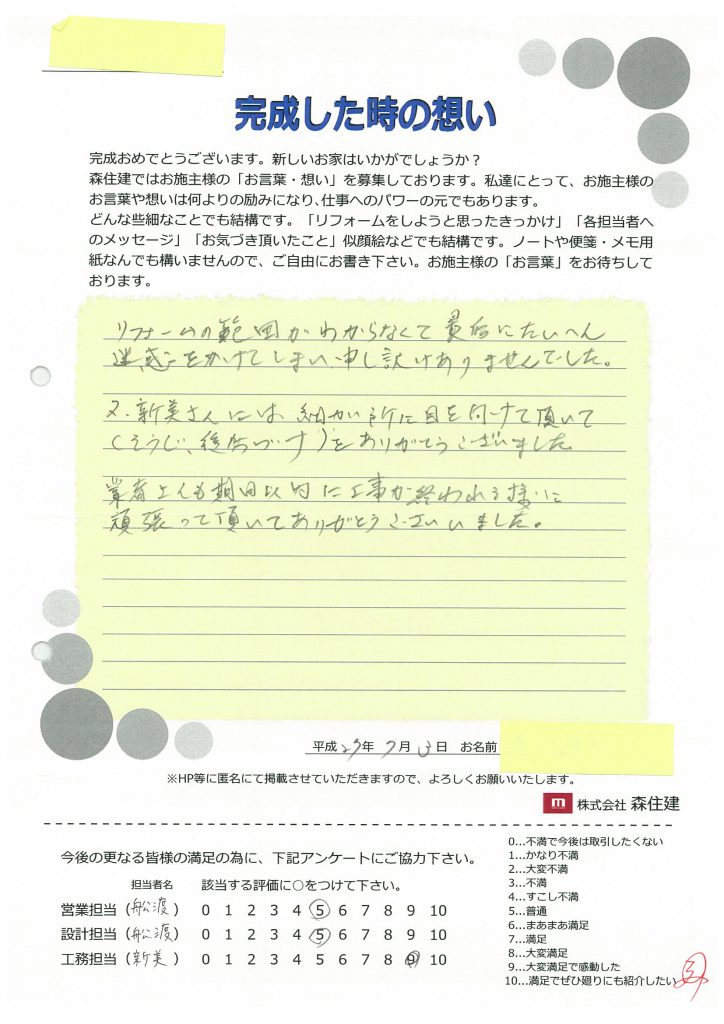 完成した時の想い
完成おめでとうございます。新しいお家はいかがでしょうか？
森住建ではお施主様の「お言葉・想い」を募集しております。私達にとって、お施主様の
お言葉や想いは何よりの励みになり、仕事へのパワーの元でもあります。
どんな些細なことでも結構です。「リフォームをしようと思ったきっかけ」「各担当者へ
のメッセージ」「お気づき頂いたこと」似顔絵などでも結構です。ノートや便箋・メモ用
紙なんでも構いませんので、ご自由にお書き下さい。お施主様の「お言葉」をお待ちして
おります。
リフォームの範囲がわからなくて最后にたいへん
迷惑をかけてしまい申し訳けありませんでした。
又、新美さんには、細かい所に目を向けて頂いて
(そうじ、後片づけ)をありがとうございました
業者さんも期日以内に工事が終われる様に
頑張って頂いてありがとうございいました。
平成27年 7月 日 お名前
※HP等に匿名にて掲載させていただきますので、よろしくお願いいたします。
m 株式会社 森住建
今後の更なる皆様の満足の為に、下記アンケートにご協力下さい。
担当者名 該当する評価に○をつけて下さい。
営業担当（船渡） 0 1 2 3 4 5 6 7 8 9 10
設計担当（船渡） 0 1 2 3 4 5 6 7 8 9 10
工務担当（新美） 0 1 2 3 4 5 6 7 8 9 10
0…不満で今後は取引したくない
1…かなり不満
2…大変不満
3…不満
4…すこし不満
5…普通
6…まあまあ満足
7…満足
8…大変満足
9…大変満足で感動した
10…満足でぜひ廻りにも紹介したい